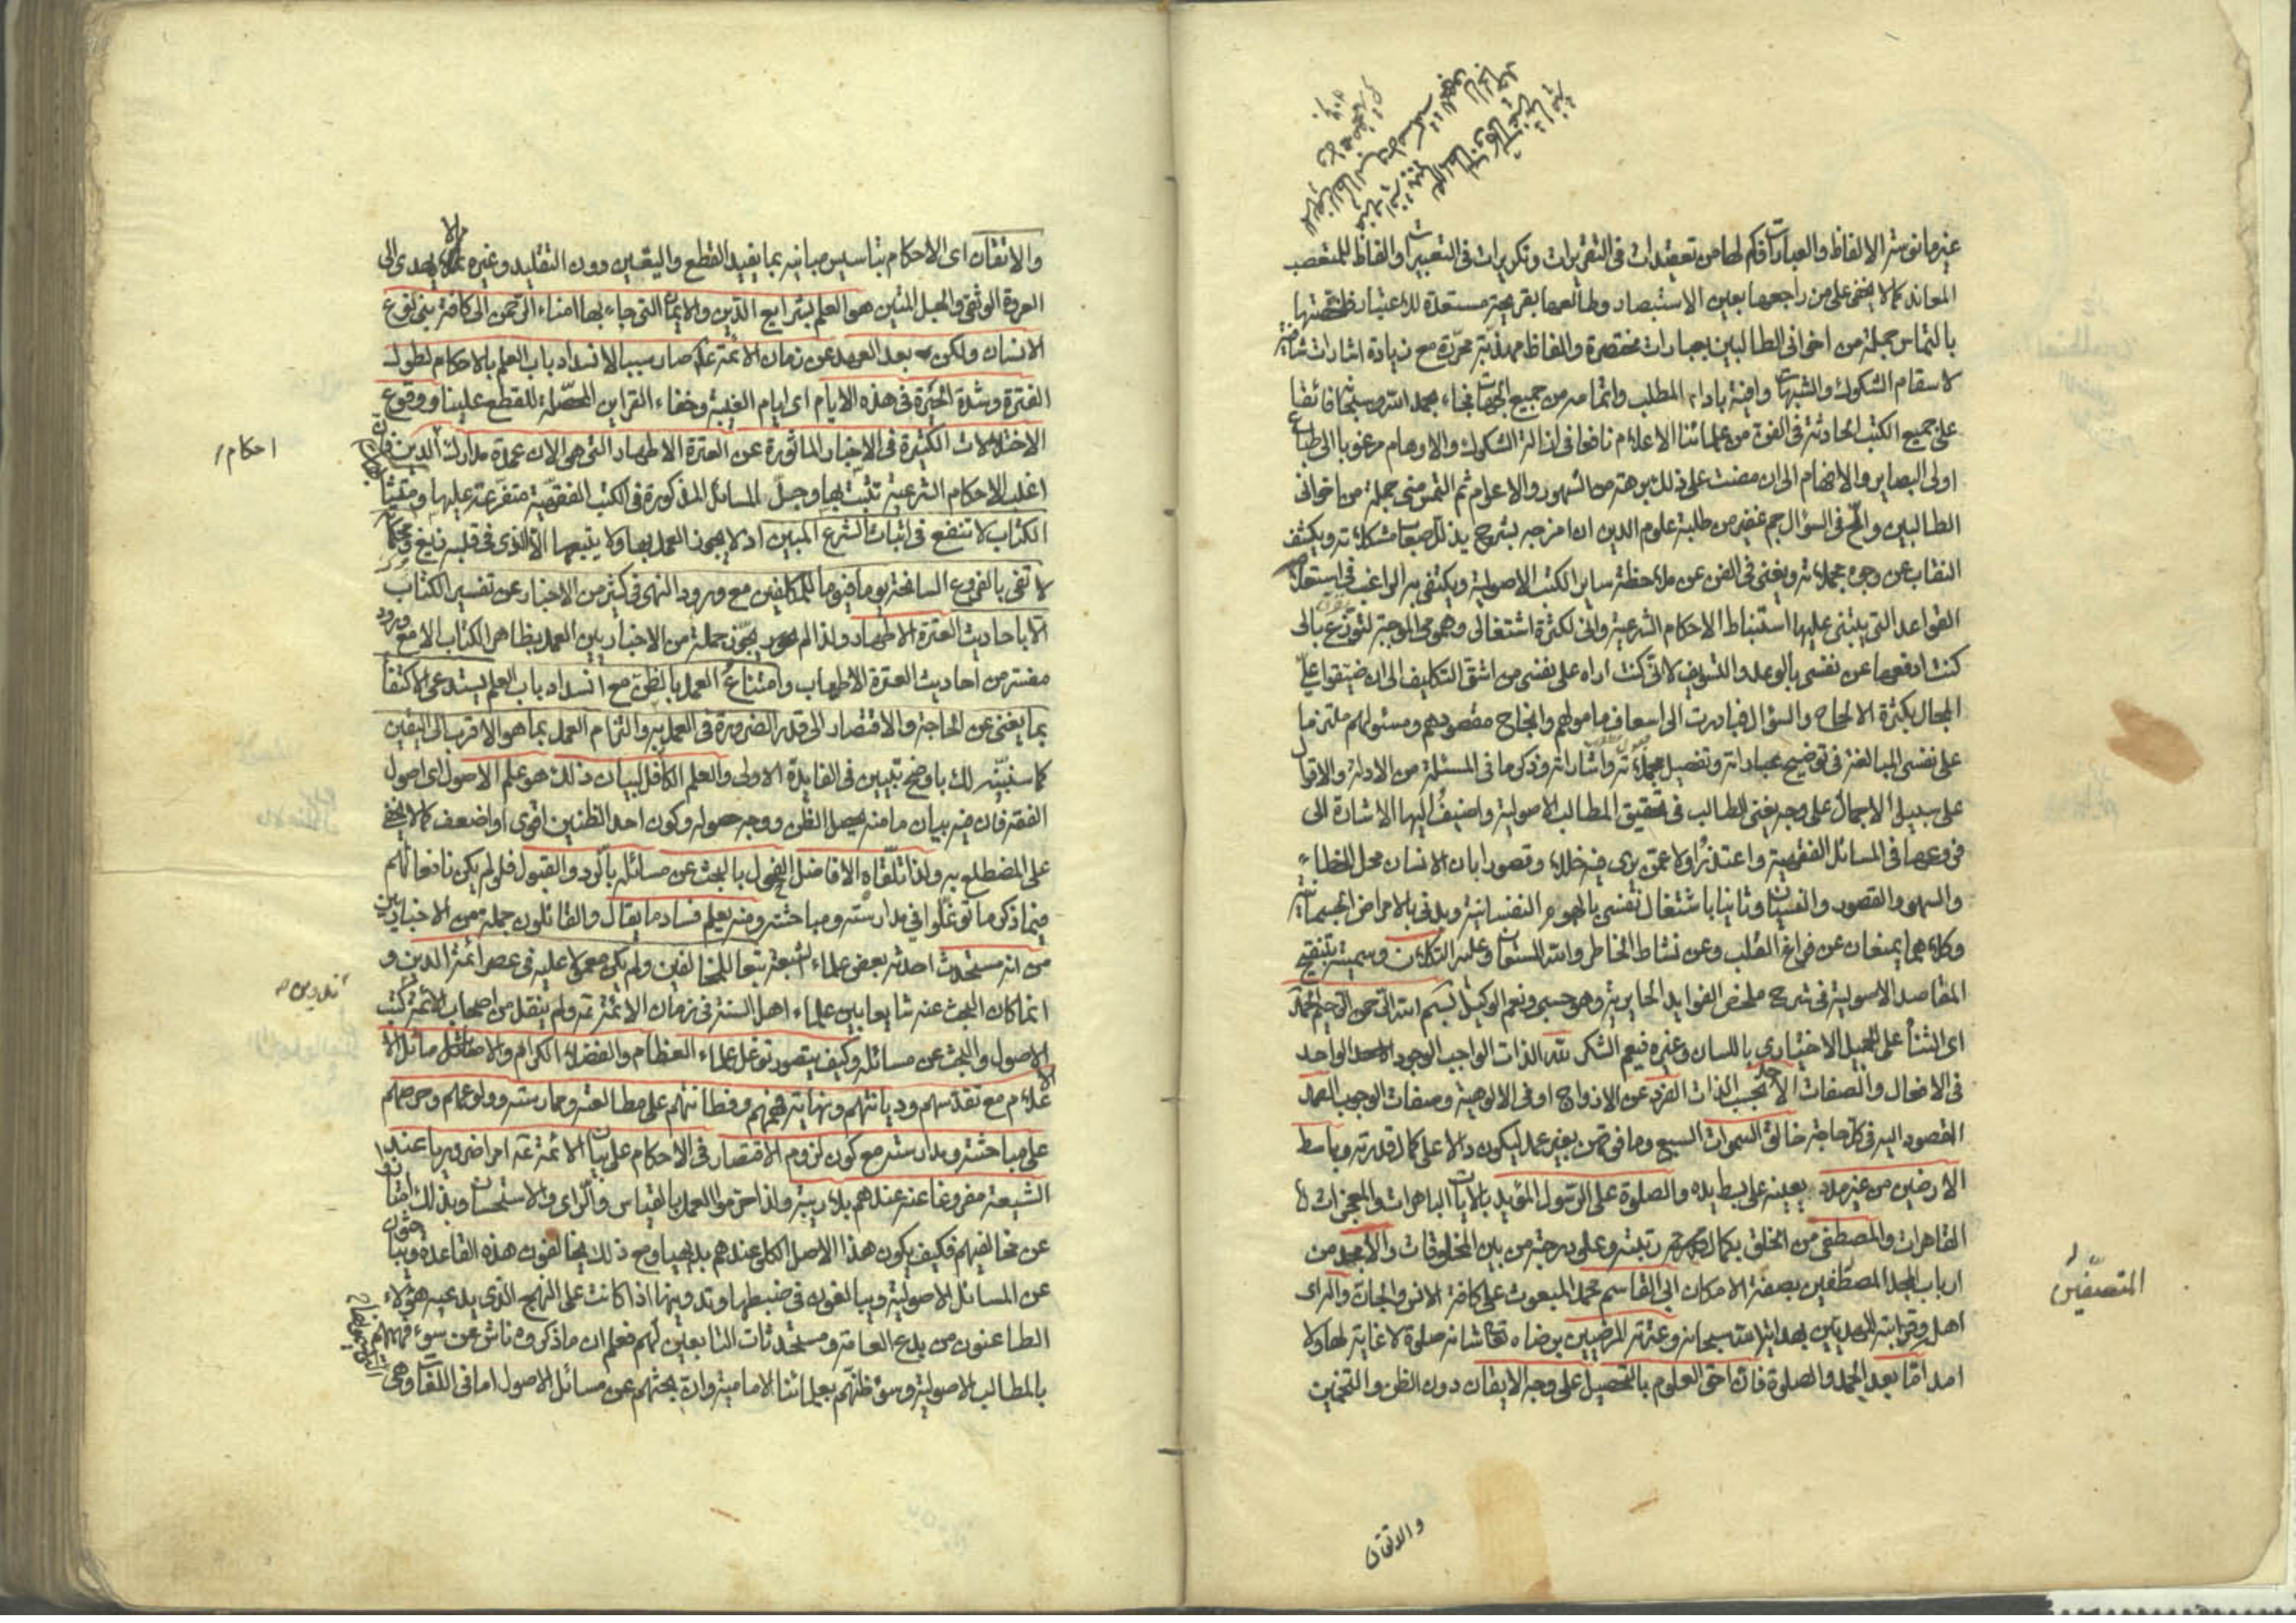 غيرها نوستر الالفاظ والعبارات فكم لها من تعقيدات في التقريرات وتكريرات في التعبيرات والفاظ للمتعصب
المعاند كما لا يخفى على من راجعها بعين الاستبصار وطالعها بقريحة مستعدة للاعتبار فلخصتها
بالتماس جملة من اخواني الطالبين بعبارات مختصرة والفاظ مهذبة محررة مع زيادة اشارات شافية
لاسقام الشكوك والشبهات وافية باداء المطلب واتمامه من جميع الجهات فجاء بحمد الله سبحانه فائقا
على جميع الكتب الحادثة في الفن من علمائنا الاعلام نافعا في ازالة الشكوك والاوهام مرغوبا الى طباع
اولى البصاير والافهام الى ان مضت على ذلك برهة من الشهور والاعوام ثم التمس مني جملة من اخواني
الطالبين والح في السؤال جم غفير من طلبة علوم الدين ان امزجه بشرح يذلل صعاب مشكلاته ويكشف
النقاب عن وجوه مجملاته ويغنى في الفن عن ملاحظة ساير الكتب الاصولية ويكتفى به الراغب في استعلام
القواعد التي يبتنى عليها استنباط الاحكام الشرعية واني لكثرة اشتغالى وهمومى الموجبة لتوزع بالى
كنت ادفعها عن نفسى بالوعد والتسويف لانى كنت اراه على نفسى من اشق التكاليف الى ان ضيقوا علىّ
المجال بكثرة الالحاح والسؤال فبادرت الى اسعاف مامولهم وانجاح مقصودهم ومسئولهم ملتزما
على نفسى المبالغة في توضيح عباراته وتفصيل مجملاته واشاراته وذكر ما في المسئلة من الادلة والاقوال
على سبيل الاجمال على وجه يغنى الطالب في تحقيق المطالب الاصولية واضيف اليها الاشارة الى
فروعها في المسائل الفقهية واعتذر اولا عمن يرى فيه خللا وقصورا بان الانسان محل الخطاء
والسهو والقصور والنسيان وثانيا باشتغال نفسى بالهموم النفسانية وبدنى بالامراض الجسمانية
وكلاهما يمنعان عن فراغ القلب وعن نشاط الخاطر والله المستعان وعليه التكلان وسميته بتنقيح
المقاصد الاصولية في شرح ملخص الفوايد الحايرية وهو حسبى ونعم الوكيل بسم الله الرحمن الرحيم الحمد
اى الثناء على الجميل الاختيارى باللسان وغيره فيعم الشكر لله الذات الواجب الوجود الواحد
في الافعال والصفات الاحد بحسب الذات الفرد عن الازواج او في الالوهية وصفات الوجوب الصمد
المقصود اليه في كل حاجة خالق السموات السبع وما فوقهن بغير عمد ليكون دالا على كمال قدرته وباسط
الارضين من غير مدد يعينه على بسطه يده والصلوة على الرسول المؤيد بالايات الباهرات والمعجزات
القاهرات والمصطفى من الخلق بكمال رتبته وعلى درجته من بين المخلوقات والامجد من
ارباب المجد المتصفين بصفة الامكان ابى القاسم محمد المبعوث على كافة الانس والجان واله اى
اهله وقرابته المهديين بهداية الله سبحانه وعترته المرضيين برضاه تعالى شانه صلوة لا غاية لها ولا
امد امّا بعد الحمد والصلوة فان احق العلوم بالتحصيل على وجه الايقان دون الظن والتخمين
المتصفين
والاتقان
والاتقان اى الاحكام بتاسيس مبانيه بما يفيد القطع واليقين دون التقليد وغيره مما لا يهدى الى
العروة الوثقى والحبل المتين هو العلم بشرايع الدين والايمان التي جاء بها امناء الرحمن الى كافة بنى نوع
الانسان ولكن بعد العهد عن زمان الائمة ع صار سببا لانسداد باب العلم بالاحكام لطول
الفترة وشدة الحيرة في هذه الايام اى ايام الغيبة وخفاء القراين المحصّلة للقطع علينا ووقوع
الاختلالات الكثيرة في الاخبار الماثورة عن العترة الاطهار التي هى الان عمدة مدارك الدين فان
احكام
اغلب الاحكام الشرعية تثبت بها وجلّ المسائل المذكورة في الكتب الفقهية متفرعة عليها ومتشابهات
الكتاب لا تنفع في اثبات الشرع المبين اذ لا يجوز العمل بها ولا يتبعها الا الذى في قلبه زيغ ومحكماته
لا تفى بالفروع السانحة يوما فيوما للمكلفين مع ورود النهى في كثير من الاخبار عن تفسير الكتاب
الا باحاديث العترة الاطهار ولذا لم يجوّز جملة من الاخباريين العمل بظاهر الكتاب الا مع ورود
مفسّر من احاديث العترة الاطياب وامتناع العمل بالظن مع انسداد باب العلم يستدعى الاكتفاء
بما يغنى عن الحاجة والاقتصار الى قدر الضرورة في العمل به والتزام العمل بما هو الاقرب الى اليقين
كما سنبينه لك باوضح تبيين في الفايدة الاولى والعلم الكافل لبيان ذلك هو علم الاصول اى اصول
الفقه فان فيه بيان ما منه يحصل الظن ووجه حصوله وكون احد الظنين اقوى او اضعف كما لا يخفى
على المضطلع به ولذا تلقاه الافاضل الفحول بالبحث عن مسائله بالرد والقبول فلو لم يكن نافعا لهم
فيما ذكر ما توغلوا في مدارسته ومباحثته ومنه يعلم فساد ما يقال والقائلون جملة من الاخباريين
من انه مستحدث احدثه بعض علماء الشيعة تبعا للمخالفين ولم يكن معمولا عليه في عصر ائمة الدين و
انما كان البحث عنه شايعا بين علماء اهل السنة في زمان الائمة ثم ولم ينقل من اصحاب الائمة كتب
تدوين
الاصول والبحث عن مسائله وكيف يتصور توغل علماء العظام والفضلاء الكرام والافاضل مسائل الا
علام مع تقدسهم وديانتهم ونهاية فهمهم وفطانتهم على مطالعته وممارسته وولوعهم وحرصهم
على مباحثته ومدارسته مع كون لزوم الاقتصار في الاحكام على بيان الائمة ع امرا ضروريا عند
الشيعة مفروغا عنه عندهم بلا ريبة ولذا حرموا العمل بالقياس والراى والاستحسان وبذلك امتازوا
عن مخالفيهم فكيف يكون هذا الاصل الكلى عندهم بديهيا ومع ذلك يخالفون هذه القاعدة ويبحثون
عن المسائل الاصولية ويبالغون في ضبطها وتدوينها اذا كانت على النهج الذى يدعيه هؤلاء
الطاعنون من بدع العامة ومستحدثات التابعين لهم فعلم ان ما ذكروه ناش عن سوء فهمهم
بالمطالب الاصولية وسوء ظنهم بعلمائنا الامامية وان بحثهم عن مسائل الاصول اما في اللغات وهى